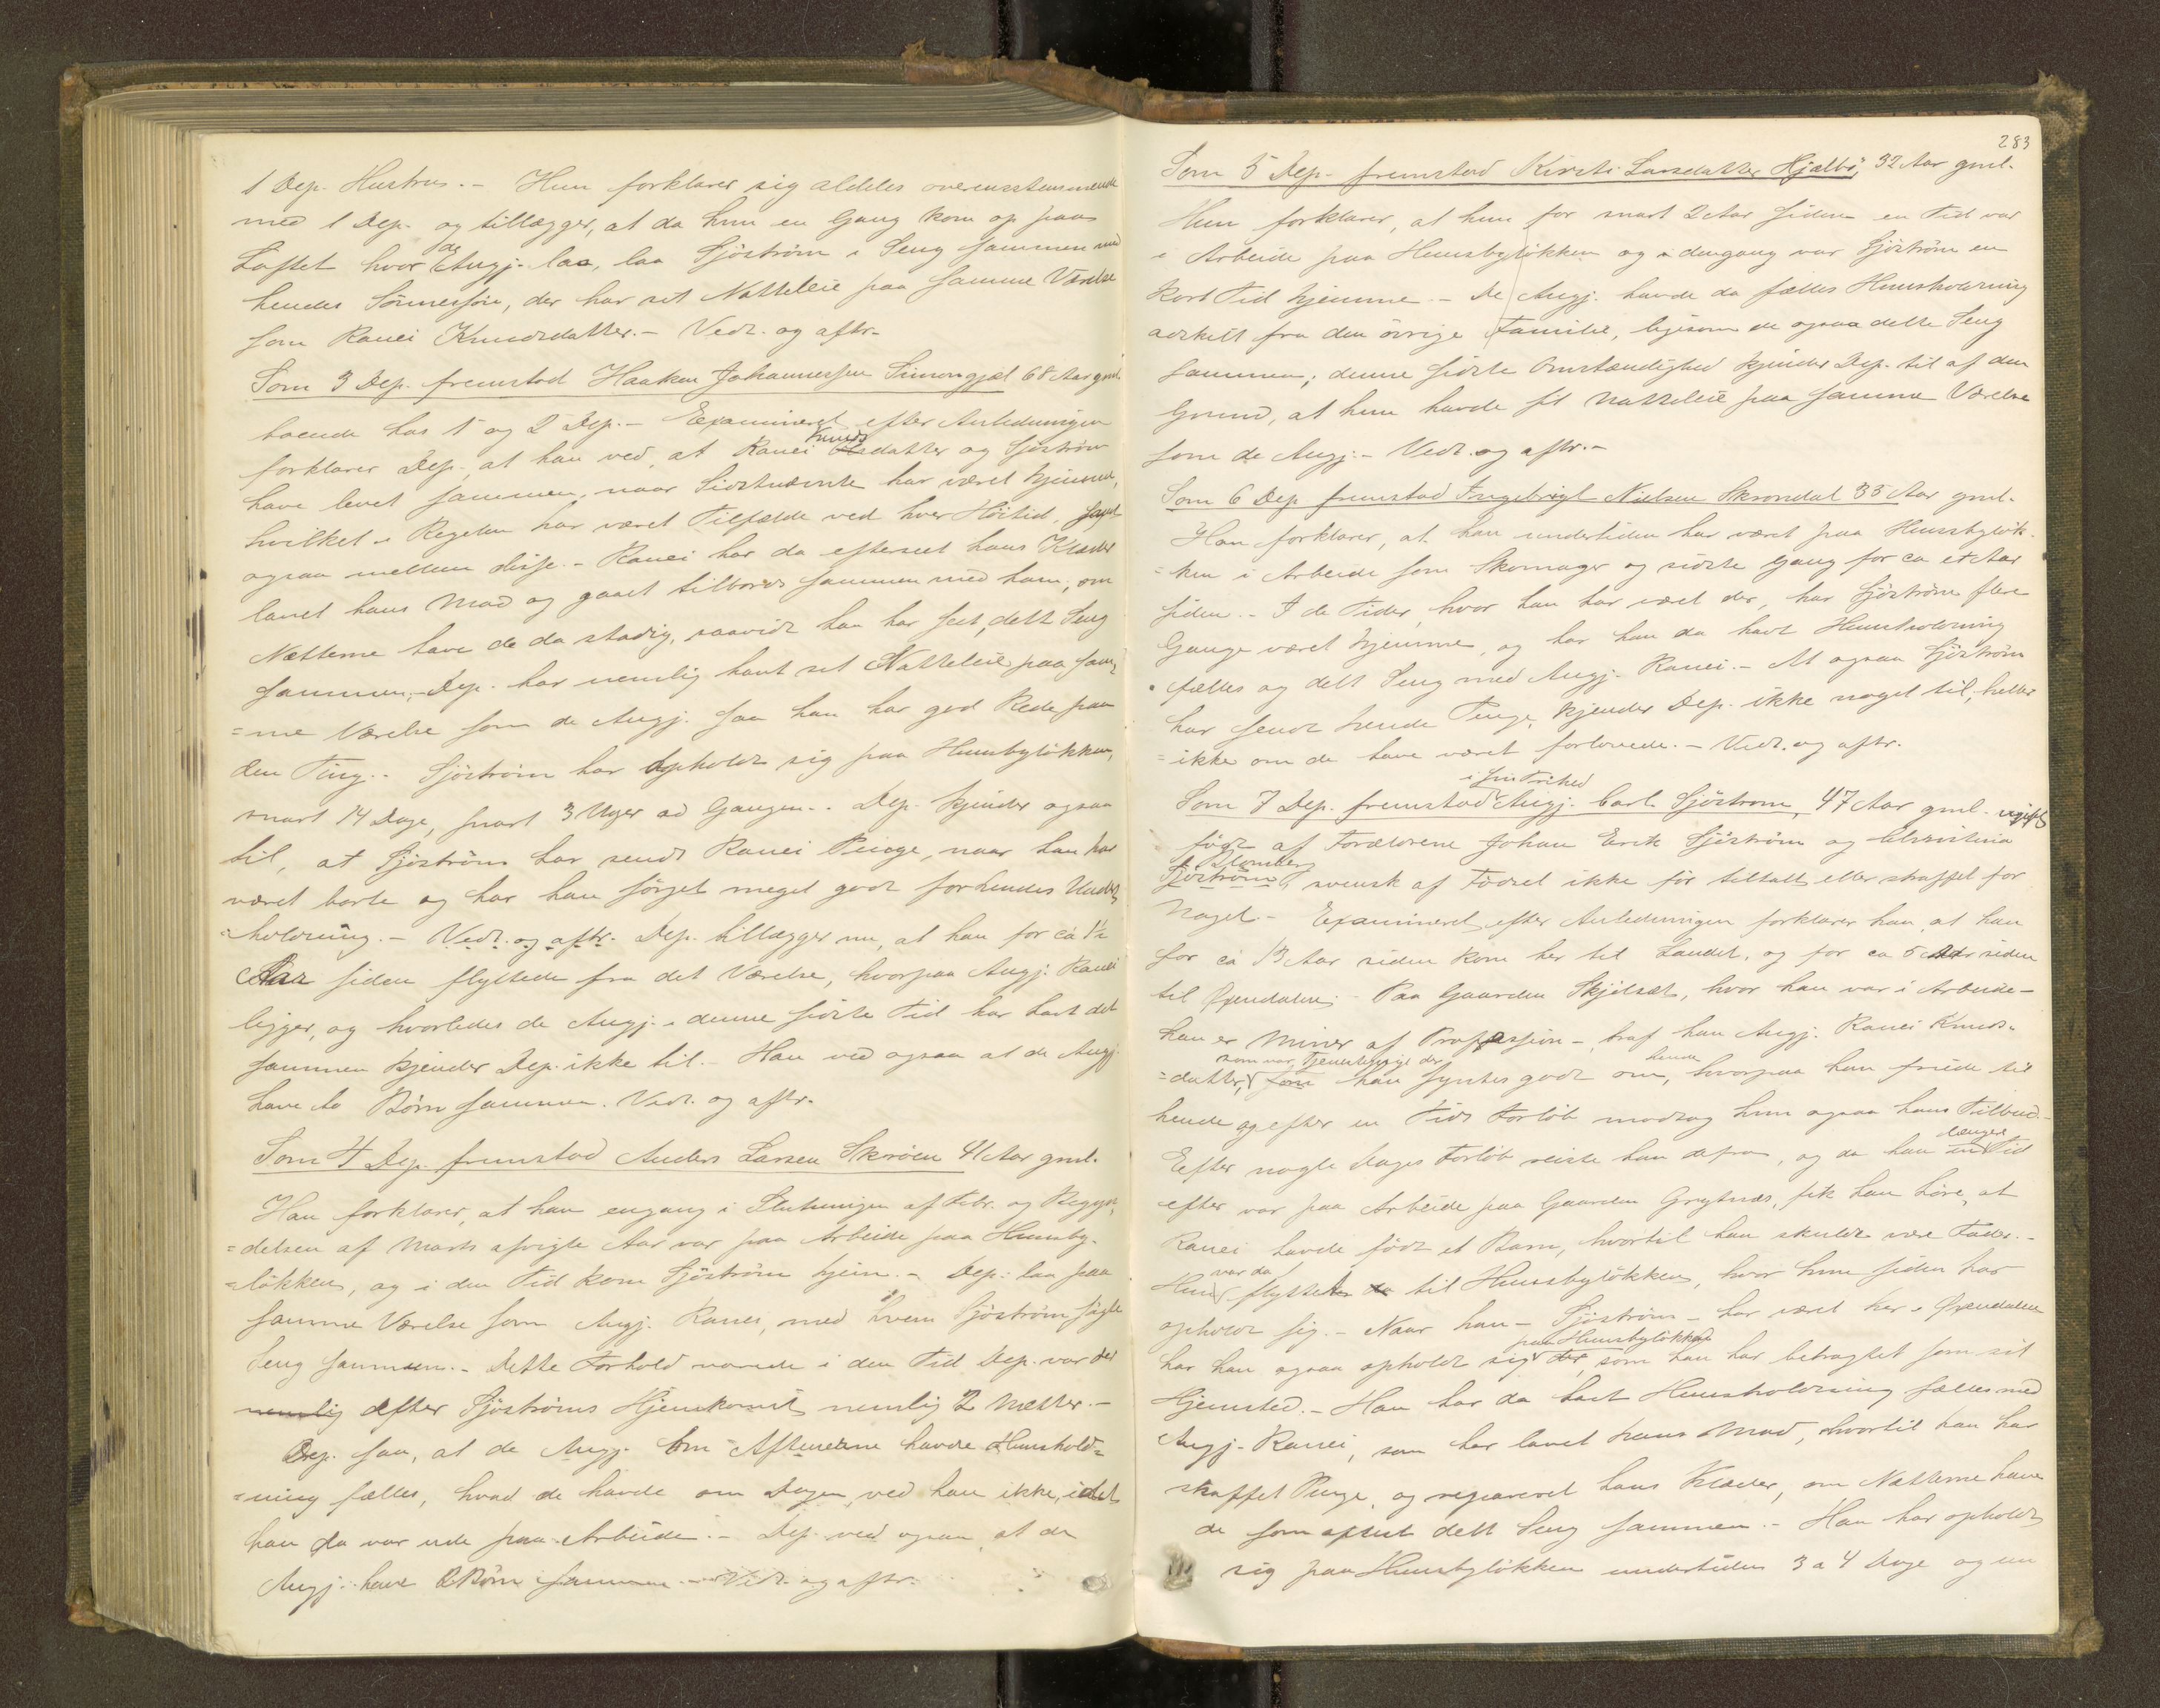 1 Dep. Hustru. - Hun forklarer sig aldeles overensstemmende
med 1 Dep. og tillægger, at da hun en Gang kom op paa
Loftet hvor de Angj. laa, laa Sjöström i Seng sammen med
hendes Sönnesön, der har sit Natteleie paa samme Værelse
som Ranei Knudsdatter. - Vedt. og aftr.
Som 3 Dep. fremstod Haaken Johannessen Simongjæl 68 Aar gml.
boende hos 1 og 2 Dep. - Examineret efter Anledningen
forklarer Dep. at han ved, at Ranei Knudsdatter og Sjöström
have levet sammen, naar Sidstnævnte har været hjemme,
hvilket i Regelen har været Tilfælde ved hver Höitid, samt
ogsaa mellem disse. - Ranei har da efterseet hans Klæder
lavet hans Mad og gaaet tilbords sammen med ham; om
Nætterne have de da stadig, saavidt han har seet, delt Seng
sammen. - Dep. har nemlig havt sit Natteleie paa sam=
=me Værelse som de Angj. saa han har god Rede paa
den Ting. - Sjöström har opholdt sig paa Huusbylökken,
snart 14 Dage, snart 3 Uger ad Gangen. - Dep. kjender ogsaa
til, at Sjöström har sendt Ranei Penge, naar han har
været borte og har han sörget meget godt for hendes Under=
=holdning. - Vedt. og aftr. Dep. tillægger nu, at han for ca 1½
Aar siden flyttede fra det Værelse, hvorpaa Angj. Ranei
ligger, og hvorledes de Angj. i denne sidste Tid har havt det
sammen kjender Dep. ikke til. - Han ved ogsaa at de Angj.
have to Börn sammen. Vedt. og aftr.
Som 4 Dep. fremstod Anders Larsen Skröen 41 Aar gml.
Han forklarer, at han engang i Slutningen af Febr. og Begyn=
=delsen af Marts afvigte Aar var paa Arbeide paa Huusby=
=lökken, og i den Tid kom Sjöström hjem. - Dep. laa paa
samme Værelse som Angj. Ranei, med hvem Sjöström sögte
Seng sammen. - Dette Forhold varede i den Tid Dep. var der
nemlig efter Sjöströms Hjemkomst nemlig 2 Nætter. -
Dep. saa, at de Angj. om Aftenerne havde Huushold=
=ning fælles, hvad de havde om Dagen ved han ikke, idet
han da var ude paa Arbeide. - Dep. ved ogsaa at de
Angj. have 2 Börn sammen. - Vedt. og aftr.
283
Som 5 Dep. fremstod Kirsti Larsdatter Hjælbö, 32 Aar gml.
Hun forklarer, at hun for snart 2 Aar siden en Tid var
i Arbeide paa Huusbylökken og i dengang var Sjöström en
kort Tid hjemme. - De Angj. havde da fælles Huusholdning
adskilt fra den övrige Familie, ligesom de ogsaa delte Seng
sammen; denne sidste Omstændighed kjender Dep. til af den
Grund, at hun havde sit Natteleie paa samme Værelse
som de Angj. - Vedt. og aftr. -
Som 6 Dep. fremstod Ingebrigt Nielsen Skrondal 35 Aar gml.
Han forklarer, at han undertiden har været paa Huusbylök=
=ken i Arbeide som Skomager og sidste Gang for ca et Aar
siden. - I de Tider, hvor han har været der, har Sjöström flere
Gange været hjemme, og har han da havt Huusholdning
fælles og delt Seng med Angj. Ranei. - At ogsaa Sjöström
har sendt hende Penge, kjender Dep. ikke noget til, heller
=ikke om de have været forlovede. - Vedt. og aftr.
i sin Frihed
Som 7 Dep. fremstod Angj. Carl Sjöström, 47 Aar gml. ugift
född af Forældrene Johan Erik Sjöström og
Blomberg
Sjöström, svensk af Födsel ikke för tiltalt eller straffet for
Noget - Examineret efter Anledningen forklarer han, at han
for ca 13 Aar siden kom her til Landet, og for ca 5 Aar siden
til Öxendalen. - Paa Gaarden Skjelsæt, hvor han var i Arbeide -
han er Minör af Profession - traf han Angj. Ranei Knuds=
som var Tjenestepige der hende
=datter, som han syntes godt om, hvorpaa han friede til
hende og efter en Tids Forløb modtog hun ogsaa hans Tilbud. -
længere
Efter nogle Dages Forløb reiste han derfra, og da han en Tid
efter var paa Arbeide paa Gaarden Grytnæs, fik han höre, at
Ranei havde födt et Barn, hvortil han skulde være Fader. -
var da
Hun flyttet da til Huusbylökken, hvor hun siden har
opholdt sig. - Naar han - Sjöström - har været her i Öxendalen
paa Huusbylökken
har han ogsaa opholdt sig der, som han har betragtet som sit
Hjemsted. - Han har da havt Huusholdning fælles med
Angj. Ranei, som har lavet hans Mad, hvortil han har
skaffet Penge, og repareret hans Klæder, om Nætterne have
de som oftest delt Seng sammen. - Han har opholdt
sig paa Huusbylökken undertiden 3 a 4 Dage og un